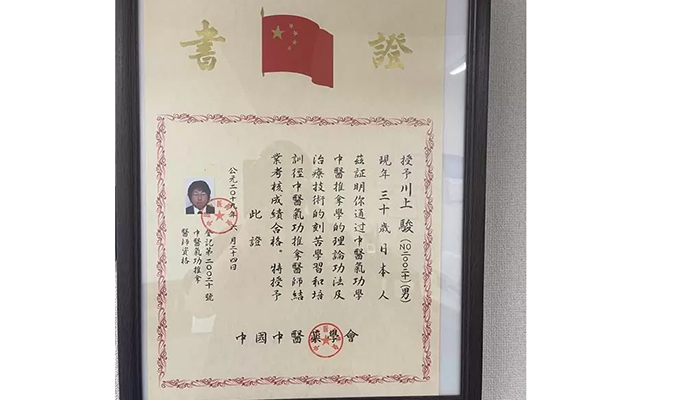 證書
授予川上 駿(NO二〇〇二十)(男)
現年 三十歲日本人
茲証明你通过中醫氣功學
中醫推拿學的理論功法及
治療技術的刻苦學習和培
訓徑中醫氣功推拿醫師結
業考核成績合格。特授予
此證
公元二〇十九年六月二十四日
登記第二〇〇二十號
中醫氣功推拿
醫師資格
中國中醫藥學會